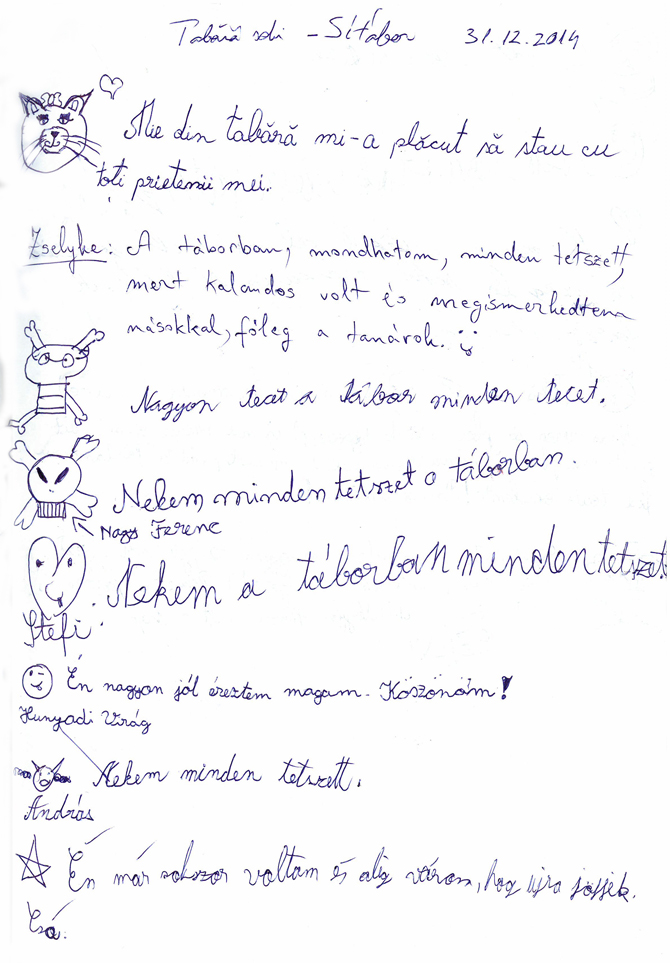 Tabără schi - Sítábor 31.12.2014
Mie din tabără mi-a plăcut să stau cu
toți prietenii mei.
Zselyke: A táborban, mondhatom, minden tetszett,
mert kalandos volt és megismerkedtem
másokkal, főleg a tanárok.
Nagyon tecet a tábor minden tecet.
Nekem minden tetszet a táborban.
Nagy Ferenc
Nekem a táborban minden tetszet.
Stefi
Én nagyon jól éreztem magam. Köszönöm!
Hunyadi Virág
Nekem minden tetszett.
András
Én már sokszor voltam és alig várom, hog újra jöjjek.